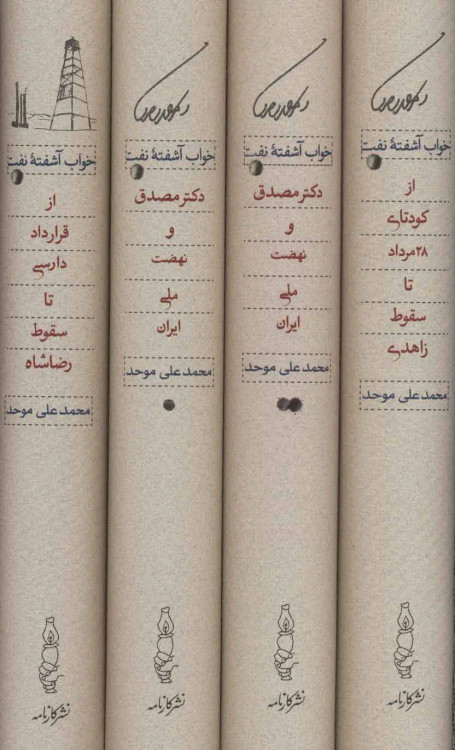 خواب آشفتهٔ نفت
از
قرارداد
دارسی
تا
سقوط
رضاشاه
محمد علی موحد
نشر کارنامه
خواب آشفتهٔ نفت
دکتر مصدق
و
نهضت
ملی
ایران
محمد علی موحد
نشر کارنامه
خواب آشفتهٔ نفت
دکتر مصدق
و
نهضت
ملی
ایران
محمد علی موحد
نشر کارنامه
خواب آشفتهٔ نفت
از
کودتای
۲۸ مرداد
تا
سقوط
زاهدی
محمد علی موحد
نشر کارنامه